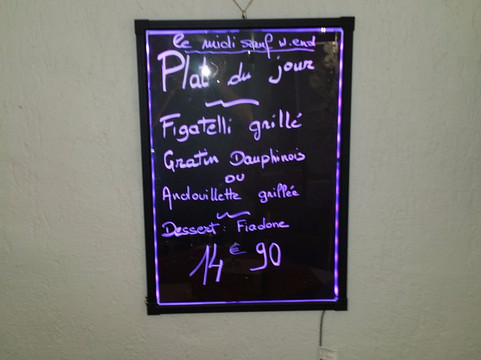 le midi sauf w.end
Plat du jour
Figatelli grillé
Gratin Dauphinois
ou
Andouillette grillée
Dessert : Fiadone
14€90